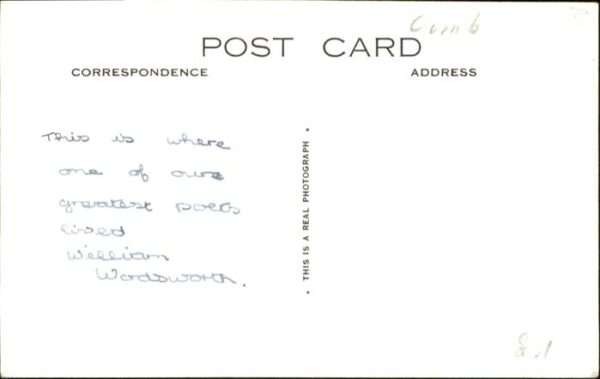 Cumb
POST CARD
CORRESPONDENCE
ADDRESS
This is where
one of ours
greatest poets
lived
William
Wordsworth.
• THIS IS A REAL PHOTOGRAPH •